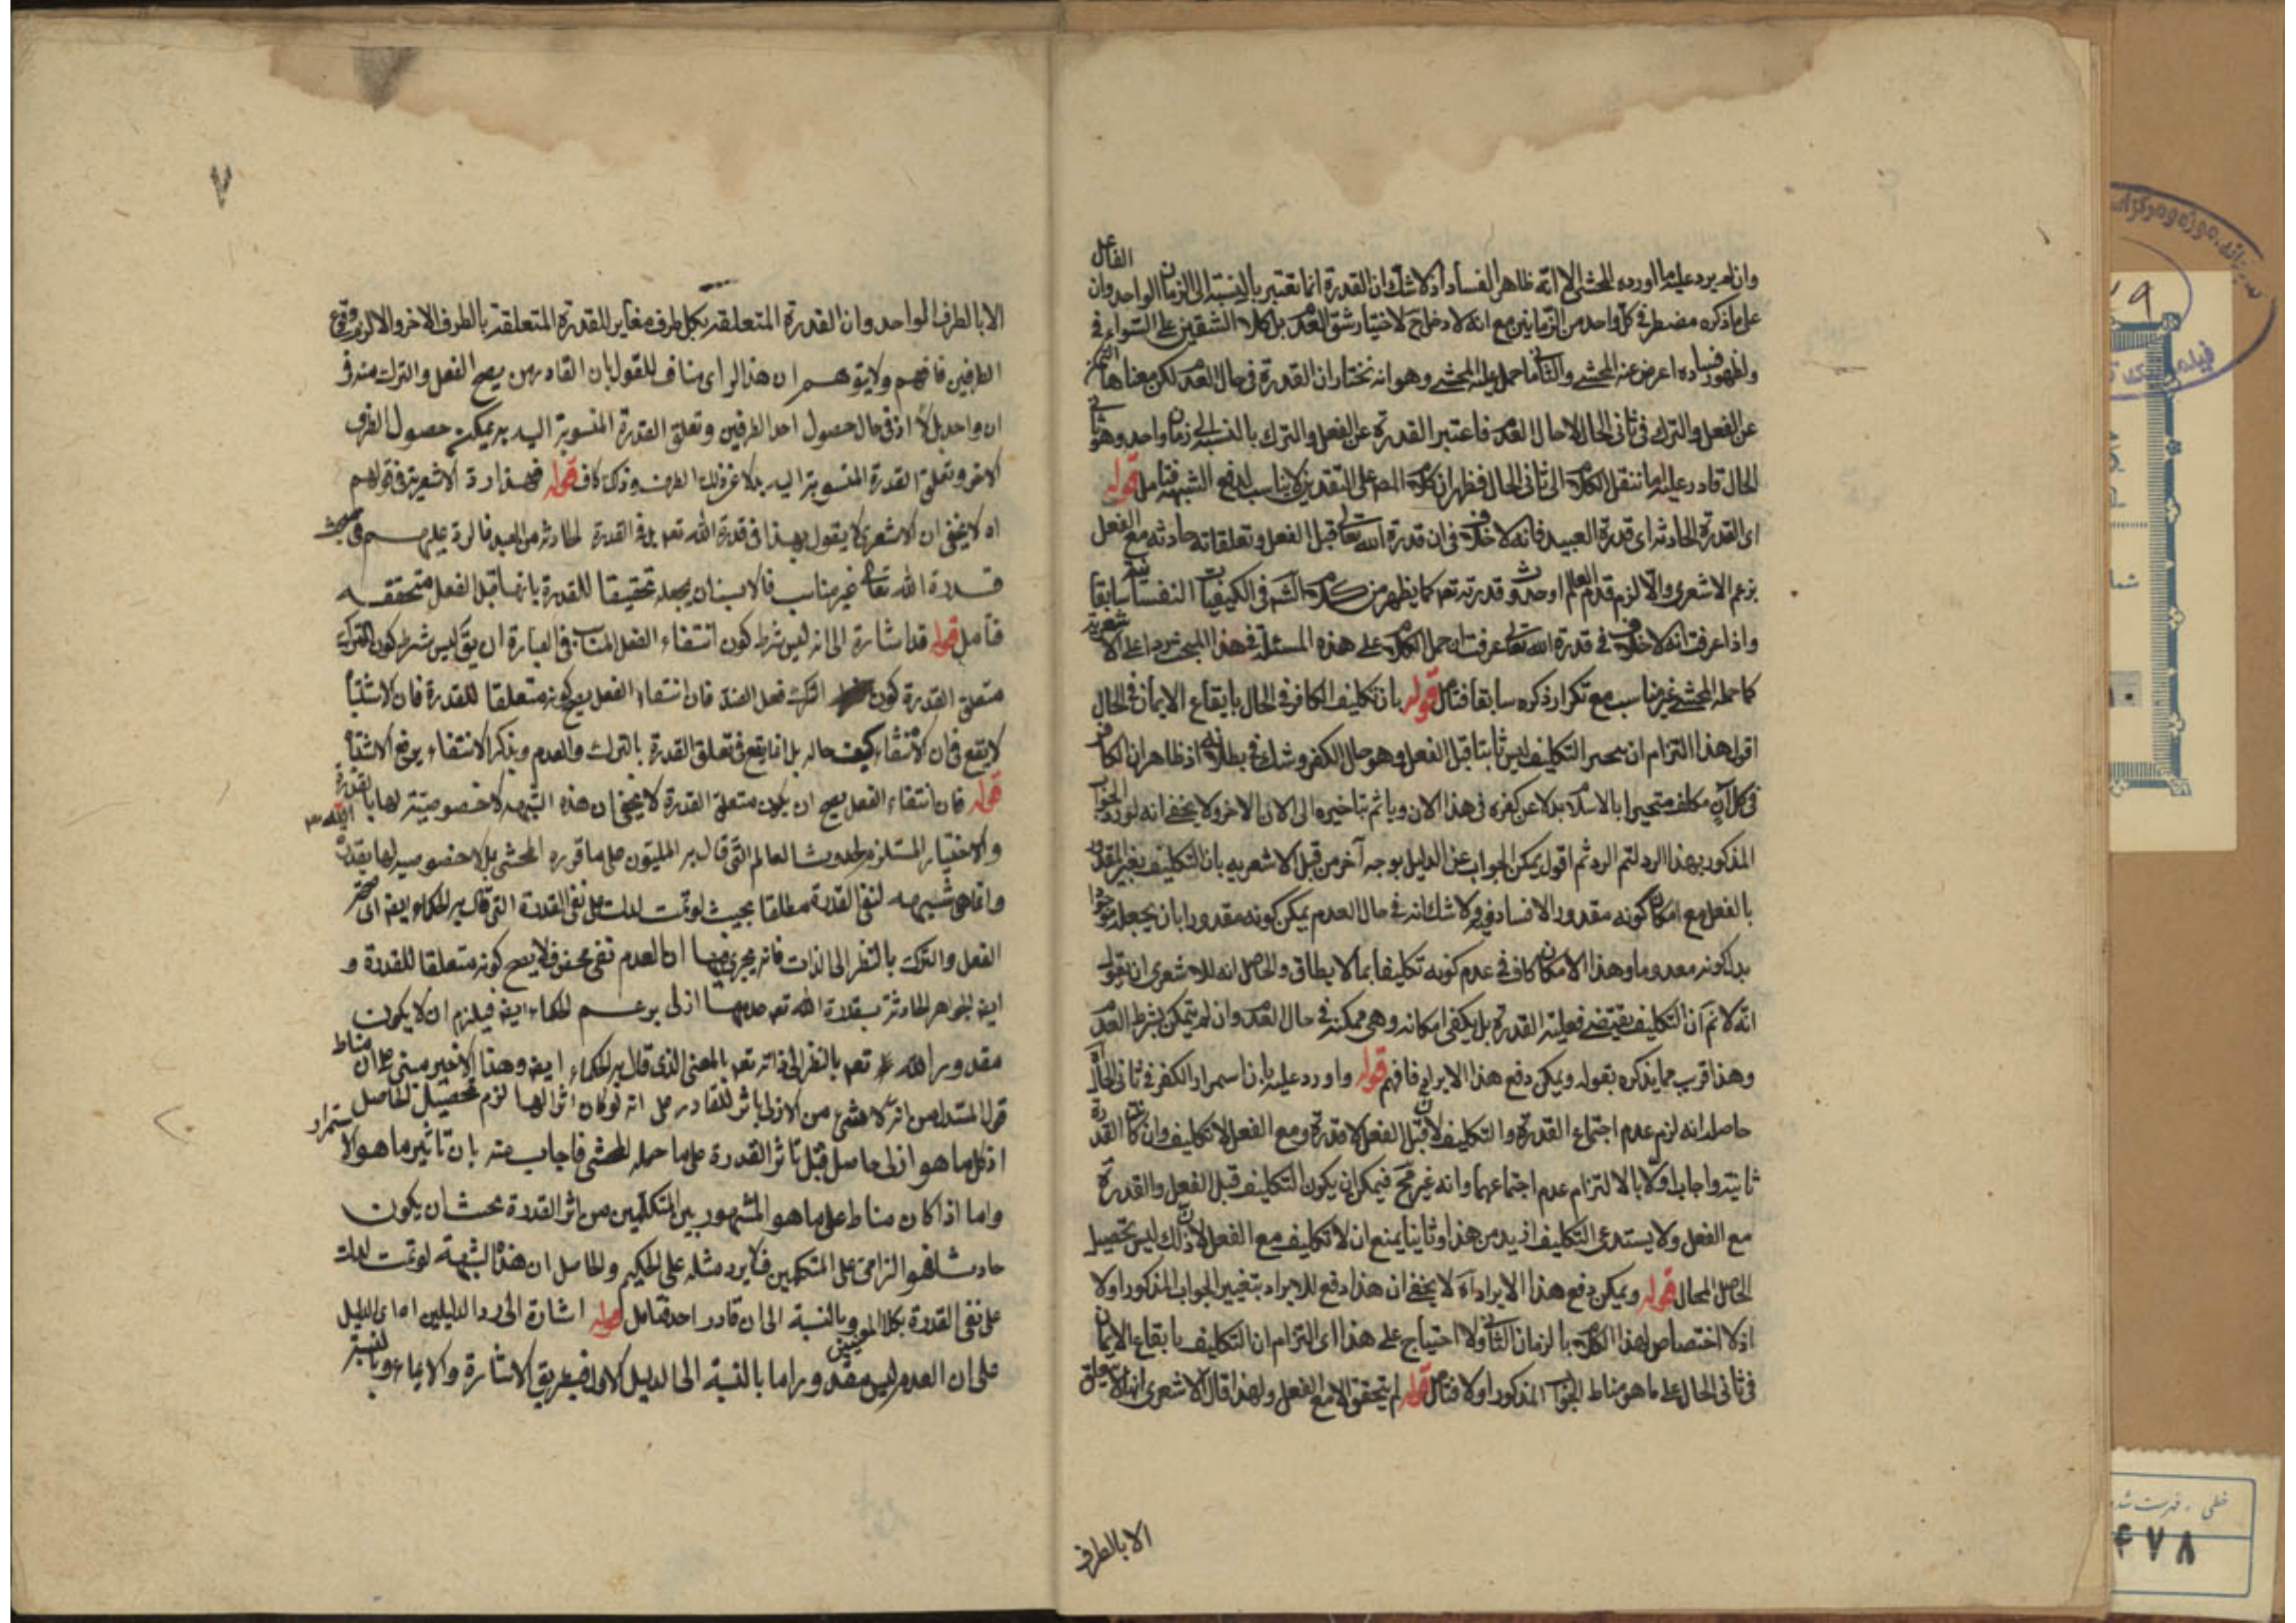 وان لم يرد عليه ما اورده المحشي الا انه ظاهر الفساد اذ لا شك ان القدرة انما تعتبر بالنسبة الى الزمان الواحد وان الفاعل
على ما ذكره مضطر في كل واحد من الزمانين مع انه لا دخل ح لاختيار شق العدم بل كلا الشقين على السواء في
ولظهور فساده اعرض عنه المحشي والثاني ما حمل عليه المحشي وهو انه نختار ان القدرة في حال العدم لكن معناها التمكن
عن الفعل والترك في ثاني الحال لا حال العدم فاعتبر القدرة عن الفعل والترك بالنسبة الى زمان واحد وهو ثاني
الحال قادر عليه اما ننقل الكلام الى ثاني الحال فظهر ان كلام المص على التقديرين لا يناسب لدفع الشبهة فتامل قوله
اى القدرة الحادثة اى قدرة العبيد فانه لا خلاف في ان قدرة الله تعالى قبل الفعل وتعلقاته حادثه مع الفعل
بزعم الاشعرى والا لزم قدم العالم او حدوث قدرته تعه كما يظهر من كلام الشم في الكيفيات النفسانية سابقا
واذا عرفت انه لا خلاف في قدرة الله تعالى عرفت ان حمل الكلام على هذه المسئلة في هذا المبحث ردا على الاشعرية
كما حمله المحشي غير مناسب مع تكرار ذكره سابقا فتامل قوله بان تكليف الكافر في الحال بايقاع الايمان في الحال
اقول هذا التزام ان التكليف ليس ثابتا قبل الفعل وهو حال الكفر وشك في بطلانه اذ ظاهر ان الكافر
في كل آن مكلف بالاسلام بدلا عن كفره في هذا الان وياثم بتاخيره الى الان الاخر ولا يخفى انه لو رد الجواب
المذكور بهذا الرد لتم الرد ثم اقول يمكن الجواب عن الدليل بوجه آخر من قبل الاشعريه بان التكليف بغير المقدور
بالفعل مع امكان كونه مقدورا لا فساد فيه ولا شك انه في حال العدم يمكن كونه مقدورا بان يجعل موجودا
بدل كونه معدوما وهذا الامكان كاف في عدم كونه تكليفا بما لا يطاق والحاصل انه للاشعرى ان يقول
انه لا نم ان التكليف يقتضي فعلية القدرة بل يكفي امكانه وهى ممكنة في حال العدم وان لم يتمكن بشرط العدم
وهذا قريب مما يذكره بقوله ويمكن دفع هذا الايراد فافهم قوله واورد عليه بان استمرار الكفر في ثاني الحال اه
حاصله انه لزم عدم اجتماع القدرة والتكليف لان قبل الفعل لا قدرة ومع الفعل لا تكليف وان كانت القدرة
ثابتة واجاب اولا بالالتزام عدم اجتماعهما وانه غير مح فيمكن ان يكون التكليف قبل الفعل والقدرة
مع الفعل ولا يستدعى التكليف ازيد من هذا وثانيا بمنع ان لا تكليف مع الفعل لان ذلك ليس تحصيل
الحاصل المحال قوله ويمكن دفع هذا الايراد اه لا يخفى ان هذا دفع للايراد بتغيير الجواب المذكور اولا
اذ لا اختصاص لهذا الكلام بالزمان الثاني ولا احتياج على هذا الى التزام ان التكليف بايقاع الايمان
في ثاني الحال على ما هو مناط الجواب المذكور اولا فتامل قوله لم يتحقق الا مع الفعل ولهذا قال الاشعرى انها لا تتعلق
الا بالطرف
٧
الا بالطرف الواحد وان القدرة المتعلقة بكل طرف مغاير للقدرة المتعلقة بالطرف الاخر والا لزم وقوع
الطرفين فافهم ولا يتوهم ان هذا الراى مناف للقول بان القادر من يصح الفعل والترك منه في
ان واحد بدلا اذ في حال حصول احد الطرفين وتعلق القدرة المنسوبة اليه به يمكن حصول الطرف
الاخر وتعلق القدرة المنسوبة اليه بدلا عن ذلك الطرف وذلك كاف قوله فحينئذ اراد الاشعرية في قولهم
اه لا يخفى ان الاشعرى لا يقول بهذا في قدرة الله تعه بل في القدرة الحادثه من العبيد فالرد عليهم في مبحث
قدرة الله تعالى غير مناسب فالانسب ان يجعله تحقيقا للقدرة بانها قبل الفعل متحققه
فتامل قوله قد اشارة الى انه ليس شرط كون انتفاء الفعل المناسب في العبارة ان يق ليس شرط كون الترك
متعلق القدرة كون الترك فعل الضد فان انتفاء الفعل يصح كونه متعلقا للقدرة فان الاشتباه
لا يقع في ان الانتفاء كيف حاله بل انما يقع في تعلق القدرة بالترك والعدم وبذكر الانتفاء يرفع الاشتباه
قوله فان انتفاء الفعل يصح ان يكون متعلق القدرة لا يخفى ان هذه الشبهه لا خصوصيته لها بالقدرة
والاختيار المستلزم لحدوث العالم التي قال بر المليون على ما قرره المحشي بل لا خصوصية لها بقدرة الله تعه
وانما هى شبهه لنفي القدرة مطلقا بحيث لو تمت لدلت على نفي القدرة التي قال بر الحكماء ايضه اى صحة
الفعل والترك بالنظر الى الذات فانه يجرى فيها ان العدم نفي محض فلا يصح كونه متعلقا للقدرة و
ايضه الجواهر الحادثة بقدرة الله تعه عدمها ازلى بزعم الحكماء ايضه فيلزم ان لا يكون
مقدورا لله تعه بالنظر الى ذاته تعه بالمعنى الذى قال بر الحكماء ايضه وهذا الاخير مبنى على ان مناط
قول المستدل من انه لا شئ من الازلى باثر للقادر على انه لو كان اثرا لها لزم تحصيل الحاصل
اذ كل ما هو ازلى حاصل قبل تاثر القدرة على ما حمله المحشي فاجاب عنه بان تاثير ما هو الاستمرار
واما اذا كان مناط على ما هو المشهور بين المتكلمين من اثر القدرة يجب ان يكون
حادثا فهو الزامى على المتكلمين فلا يرد مثله على الحكيم والحاصل ان هذه الشبهة لو تمت لدلت
على نفي القدرة بكلا المعنيين وبالنسبة الى ان قادر احد فتامل قوله اشارة الى رد الدليلين اما اى الدليل
على ان العدم ليس مقدورا اما بالنسبة الى الدليل الاول فبطريق الاشارة والايماء وبالنسبة
خطی - فهرست شده
۴۷۸